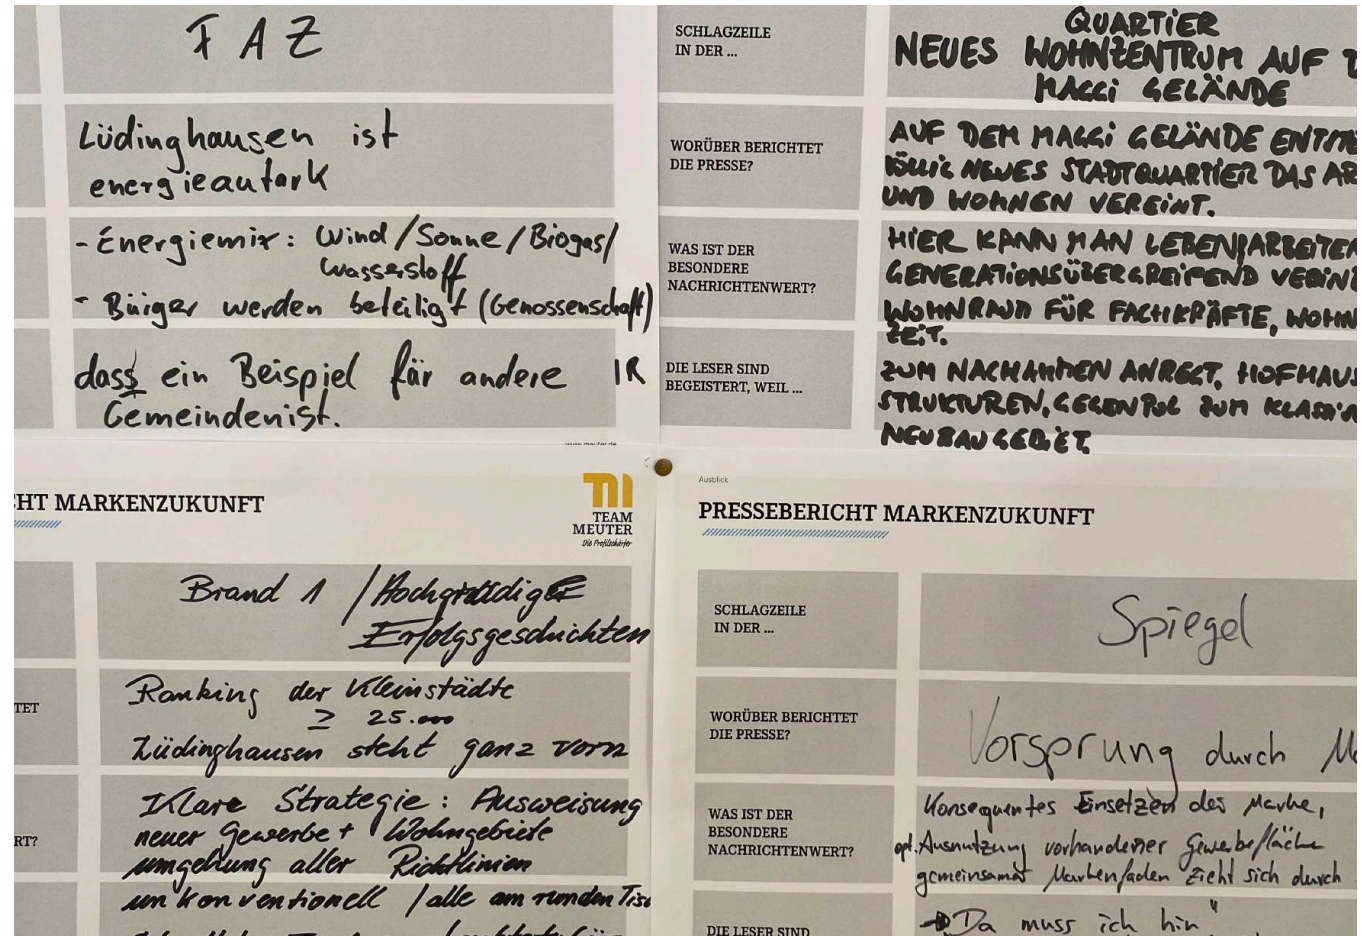 FAZ
Lüdinghausen ist
energieautark
- Energiemix: Wind/Sonne/Biogas/
Wasserstoff
- Bürger werden beteiligt (Genossenschaft)
dass ein Beispiel für andere IR
Gemeinden ist.
www.meuter.de
SCHLAGZEILE
IN DER ...
QUARTIER
NEUES WOHNZENTRUM AUF
MAGGi GELÄNDE
WORÜBER BERICHTET
DIE PRESSE?
AUF DEM MAGGi GELÄNDE ENTSTE
VÖLLIG NEUES STADTQUARTIER DAS AR
UND WOHNEN VEREINT.
WAS IST DER
BESONDERE
NACHRICHTENWERT?
HIER KANN MAN LEBEN/ARBEITEN
GENERATIONSÜBERGREIFEND VEREIN
WOHNRAUM FÜR FACHKRÄFTE, WOHN
ZEIT.
DIE LESER SIND
BEGEISTERT, WEIL ...
ZUM NACHAHMEN ANREGT, HOFHAUS
STRUKTUREN, GEGENPOL ZUM KLASSI
NEUBAUGEBIET
CHT MARKENZUKUNFT
TEAM
MEUTER
Die Profilschärfer
Brand 1 / Hochgradige
Erfolgsgeschichten
TET
Ranking der Kleinstädte
≥ 25.000
Lüdinghausen steht ganz vorn
RT?
Klare Strategie: Ausweisung
neuer Gewerbe + Wohngebiete
umgehung aller Richtlinien
unkonventionell / alle am runden Tisc
Ausblick
PRESSEBERICHT MARKENZUKUNFT
SCHLAGZEILE
IN DER ...
Spiegel
WORÜBER BERICHTET
DIE PRESSE?
Vorsprung durch Ma
WAS IST DER
BESONDERE
NACHRICHTENWERT?
Konsequentes Einsetzen der Marke,
opt. Ausnutzung vorhandener Gewerbefläche
gemeinsamer Markenfaden zieht sich durch
DIE LESER SIND
"Da muss ich hin"